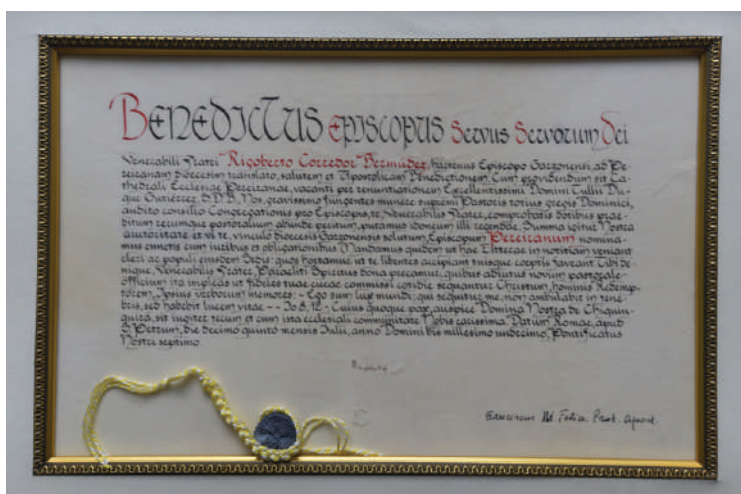 Benedictus Episcopus Servus Servorum Dei
Venerabili Fratri Rigoberto Corredor Bermúdez, hactenus Episcopo Garzonensi, ad Pe-
reiranam Dioecesim translato, salutem et Apostolicam Benedictionem. Cum providendum sit Ca-
thedrali Ecclesiae Pereiranae, vacanti per renuntiationem Excellentissimi Domini Tullii Du-
que Gutiérrez, S.D.B., Nos, gravissimo fungentes munere supremi Pastoris totius gregis Dominici,
audito consilio Congregationis pro Episcopis, te, Venerabilis Frater, comprobatis dotibus prae-
ditum rerumque pastoralium abunde peritum, putamus idoneum illi regendae. Summa igitur Nostra
auctoritate et vi te, vinculo dioecesis Garzonensis solutum, Episcopum Pereiranum nomina-
mus cunctis cum iuribus et obligationibus. Mandamus quidem ut hae Litterae in notitiam veniant
cleri ac populi eiusdem Sedis; quos hortamur ut te libentes accipiant tuisque coeptis faveant. Tibi de-
nique, Venerabilis Frater, Paracliti Spiritus dona precamur, quibus adiutus novum pastorale
officium ita impleas ut fideles tuae curae commissi cotidie sequantur Christum, hominis Redemp-
torem, Ipsius verborum memores: - Ego sum lux mundi; qui sequitur me, non ambulabit in tene-
bris, sed habebit lucem vitae - - Io 8, 12 -. Cuius quoque pax, auspice Domina Nostra de Chiquin-
quirá, sit iugiter tecum et cum ista ecclesiali communitate Nobis carissima. Datum Romae, apud
S. Petrum, die decimo quinto mensis Iulii, anno Domini bis millesimo undecimo, Pontificatus
Nostri septimo.